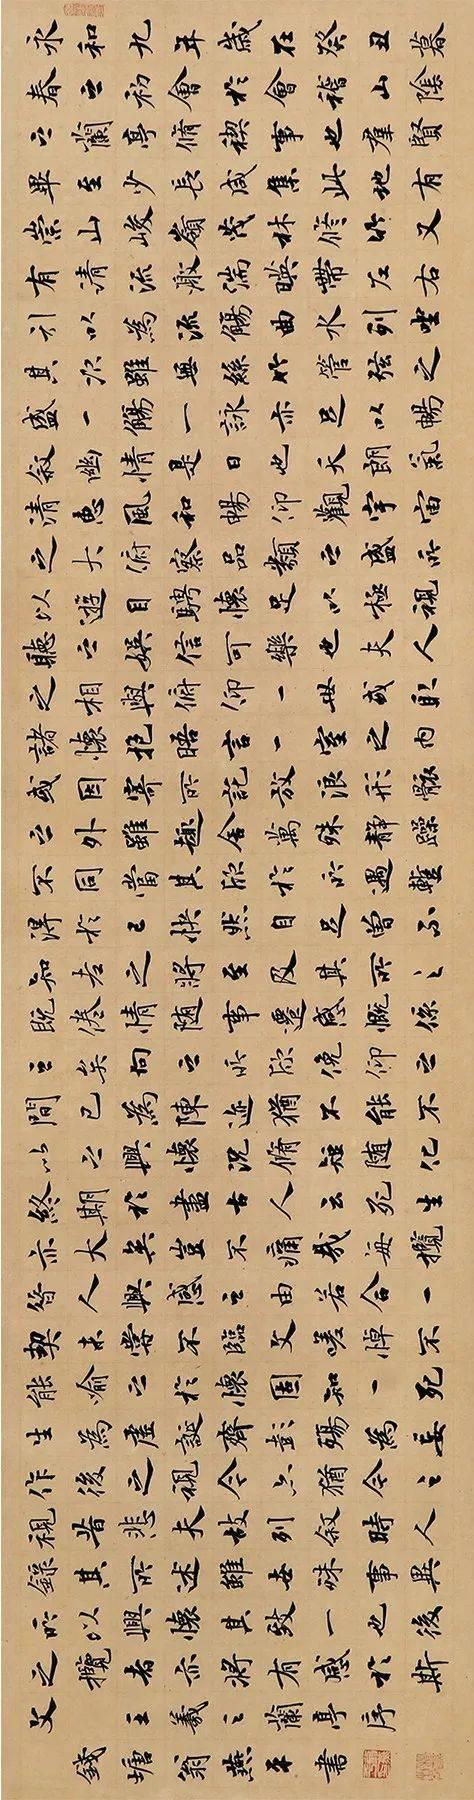 永和九年歲在癸丑暮
春之初會於會稽山陰
之蘭亭脩禊事也羣賢
畢至少長咸集此地有
崇山峻嶺茂林脩竹又
有清流激湍暎帶左右
引以為流觴曲水列坐
其次雖無絲竹管弦之
盛一觴一詠亦足以暢
叙幽情是日也天朗氣
清惠風和暢仰觀宇宙
之大俯察品類之盛所
以遊目騁懷足以極視
聽之娛信可樂也夫人
之相與俯仰一世或取
諸懷抱晤言一室之內
或因寄所託放浪形骸
之外雖趣舍萬殊靜躁
不同當其欣於所遇蹔
得於己快然自足曾不
知老之將至及其所之
既倦情隨事遷感慨係
之矣向之所欣俛仰之
間已為陳迹猶不能不
以之興懷況脩短隨化
終期於盡古人云死生
亦大矣豈不痛哉每攬
昔人興感之由若合一
契未嘗不臨文嗟悼不
能喻之於懷固知一死
生為虛誕齊彭殤為妄
作後之視今亦猶今之
視昔悲夫故列叙時人
錄其所述雖世殊事異
所以興懷其致一也後
之攬者亦將有感於斯
文 王羲之蘭亭序
錢塘翁燕平書